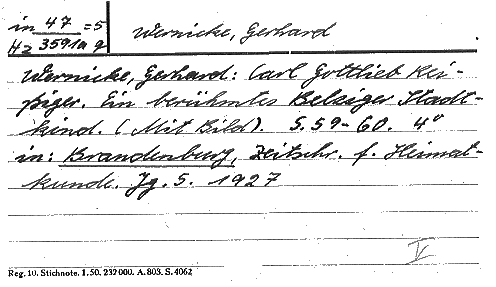 in 47 = 5
Hz 3591a q
Wernicke, Gerhard
Wernicke, Gerhard: Carl Gottlieb Rei-
ßiger. Ein berühmtes Belziger Stadt-
kind. (Mit Bild). S. 59-60. 4°
in: Brandenburg, Zeitschr. f. Heimat-
kunde. Jg. 5. 1927
V
Reg. 10. Stichnote. 1. 50. 232000. A. 803. S. 4062